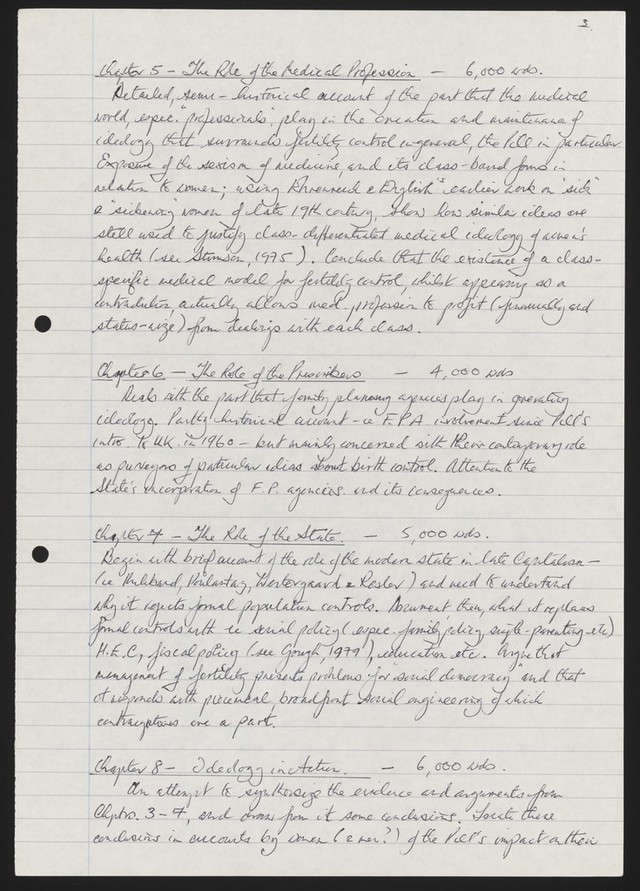 3.
Chapter 5 – The Role of the Medical Profession – 6,000 wds.
Detailed, semi-historical account of the part that the medical
world, espec. "professionals", play in the creation and maintenance of
ideology that surrounds fertility control in general, the Pill in particular.
Exposure of the sexism of medicine, and its class-based forms in
relation to women; using Ehrenreich & English's earlier work on "sick"
& "sickening" women of late 19th century, show how similar ideas are
still used to justify class-differentiated medical ideology of women's
health (see Stimson, 1975). Conclude that the existence of a class-
specific medical model for fertility control, whilst appearing as a
contradiction, actually allows med. profession to profit (financially and
status-wise) from dealings with each class.
Chapter 6 – The Role of the Prescribers – 4,000 wds
Deals with the part that family planning agencies play in generating
ideology. Partly historical account – ie F.P.A. involvement since Pill's
intro. to UK. in 1960 – but mainly concerned with their contemporary role
as purveyors of particular ideas about birth control. Attention to the
State's incorporation of F.P. agencies and its consequences.
Chapter 7 – The Role of the State. – 5,000 wds.
Begin with brief account of the role of the modern state in late Capitalism –
(ie Miliband, Poulantzas, Westergaard & Resler) and need to understand
why it rejects formal population controls. Document then, what it replaces
formal controls with ie social policy (espec. family policy, single-parenting etc)
H.E.C., fiscal policy (see Gough, 1979), education etc. Argue that
management of fertility presents problems for social democracy and that
it responds with piecemeal, broadfront social engineering of which
contraceptives are a part.
Chapter 8 – Ideology in Action. – 6,000 wds.
An attempt to synthesize the evidence and arguments from
Chptrs. 3–7, and draw from it some conclusions. Locate these
conclusions in accounts by women (& men?) of the Pill's impact on their